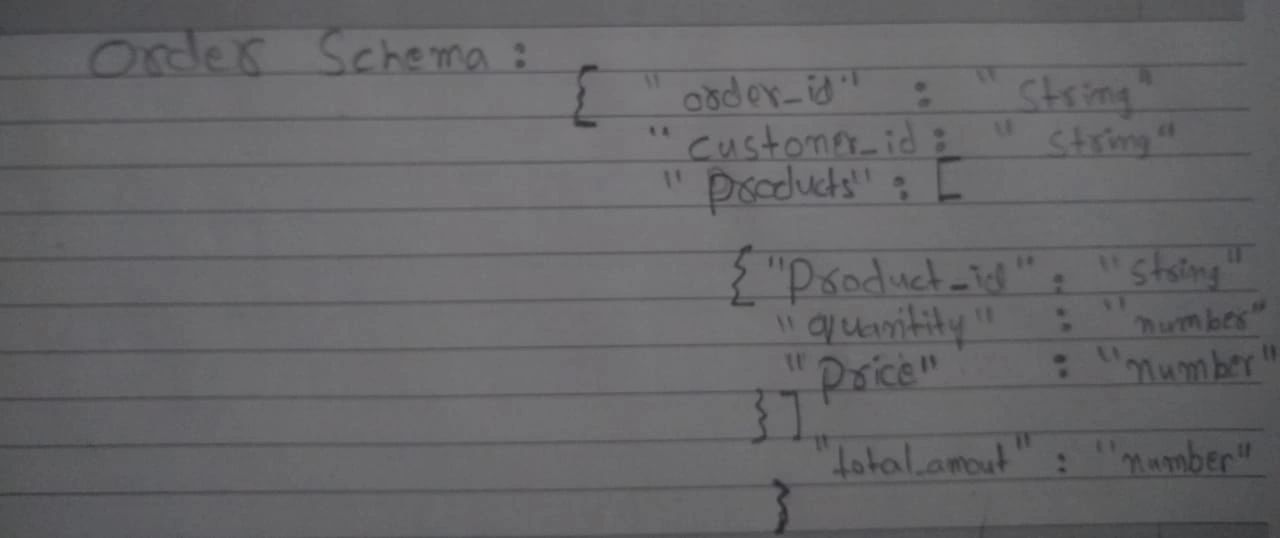 Order Schema :
{ "order_id" : "String"
"customer_id : "String"
"products" : [
{ "Product_id" : "String"
"quantity" : "number"
"Price" : "number"
} ]
"total_amout" : "number"
}